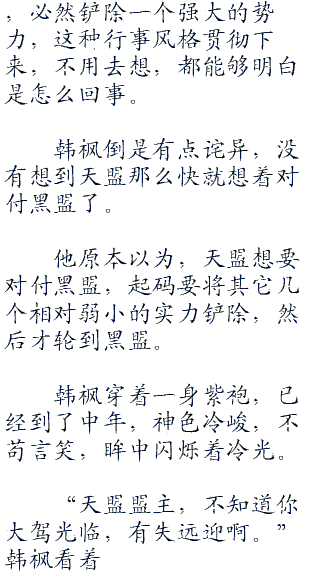 ，必然铲除一个强大的势
力，这种行事风格贯彻下
来，不用去想，都能够明白
是怎么回事。
韩枫倒是有点诧异，没
有想到天盟那么快就想着对
付黑盟了。
他原本以为，天盟想要
对付黑盟，起码要将其它几
个相对弱小的实力铲除，然
后才轮到黑盟。
韩枫穿着一身紫袍，已
经到了中年，神色冷峻，不
苟言笑，眸中闪烁着冷光。
“天盟盟主，不知道你
大驾光临，有失远迎啊。”
韩枫看着